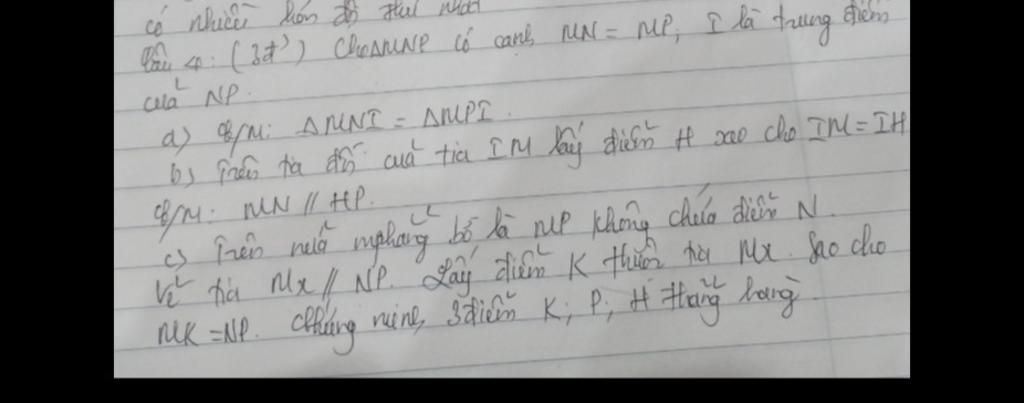 có nhiều hơn độ
Câu 4: (3đ) Cho ΔMNP có cạnh MN = MP; I là trung điểm
của NP.
a) C/M: ΔMNI = ΔMPI.
b) Trên tia đối của tia IM lấy điểm H sao cho IM = IH
C/M: MN // HP.
c) Trên nửa mphẳng bờ là MP không chứa điểm N.
Vẽ tia Mx // NP. Lấy điểm K thuộc tia Mx sao cho
MK = NP. Chứng minh 3 điểm K; P; H thẳng hàng.